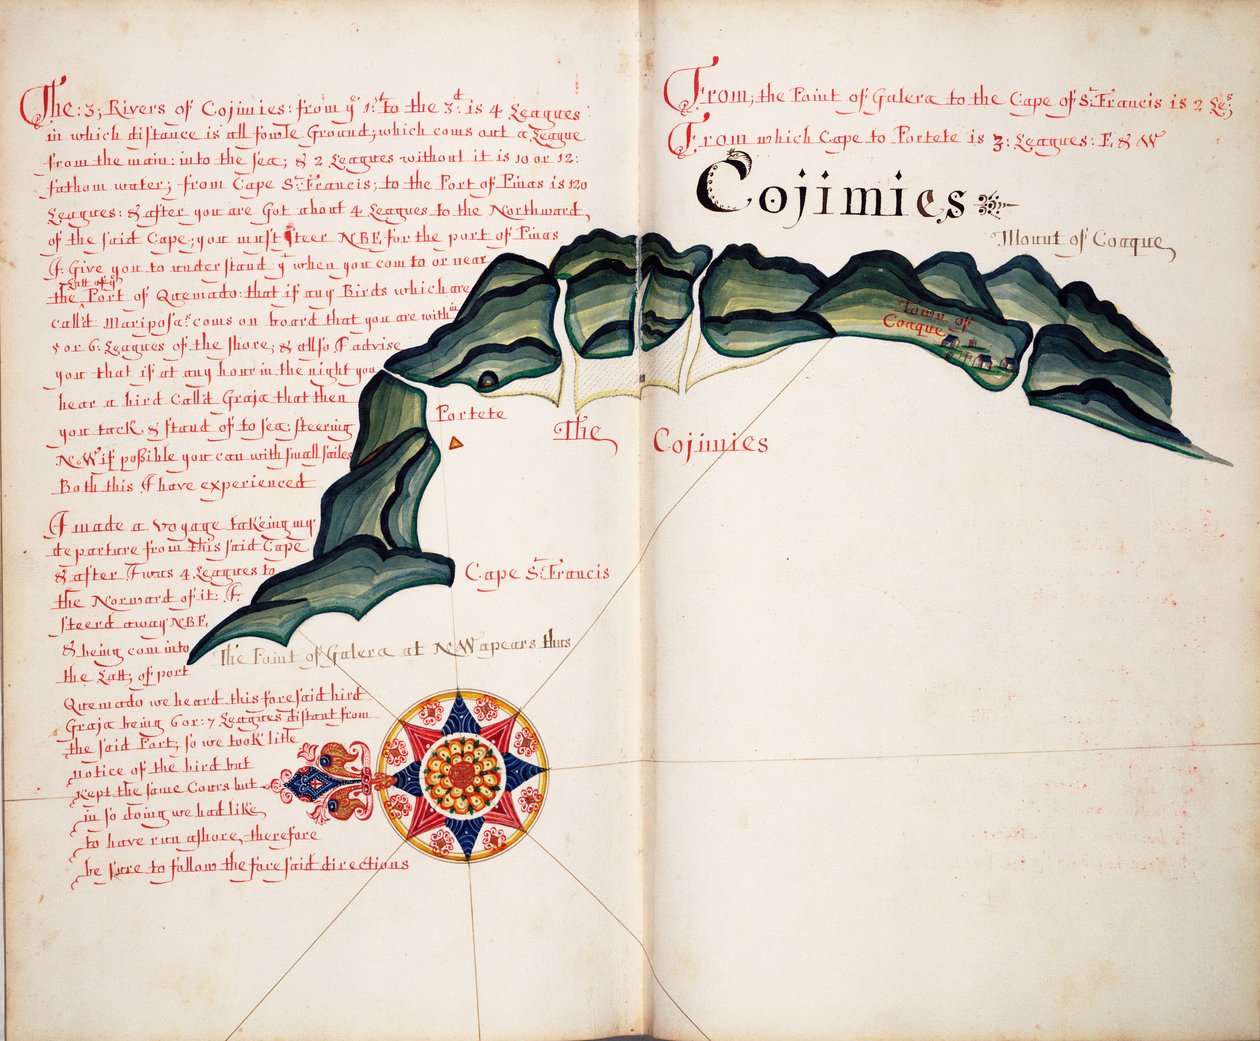 The: 3; Rivers of Cojimies: from yͤ 1:ˢᵗ to the 3ᵈ is 4 Leagues
in which distance is all fowle Ground; which coms out a League
from the main: into the sea; & 2 Leagues without it is 10 or 12:
fathom water; from Cape Sᵗ Francis; to the Port of Pinas is 120
Leagues: & after you are Got about 4 Leagues to the Northward
of the said Cape; you must steer NBE, for the port of Pinas
I. Give you to understand yᵗ when you com to or near
Latt of yᵉ
the Port of Quemado: that if any Birds which are
call'd Mariposaˢ coms on board that you are withⁱⁿ
5 or 6: Leagues of the shore; & allso I advise
you that if at any hour in the night you
hear a bird Call'd Graja that then
you tack & stand of to sea: steering
NW if possible you can with small sailes
Both this I have experienced
I made a Voyage takeing my
departure from this said Cape
& after I was 4. Leagues to
the Norward of it: I.
steerd away NBE,
& being com into
the Latt; of port
Quemado we heard this foresaid bird
Graja being 6 or: 7 Leagues distant from
the said Port; so we took litle
notice of the bird but
kept the same Cours but
in so doing we had like
to have run ashore, therefore
be sure to follow the foresaid directions
From; the Point of Galera to the Cape of Sᵗ Francis is 2 Leˢ;
From which Cape to Portete is 3: Leagues: E & W
Cojimies
Mount of Coaque
Town of
Coaque
Portete
The Cojimies
Cape Sᵗ Francis
The Point of Galera at NW apears thus